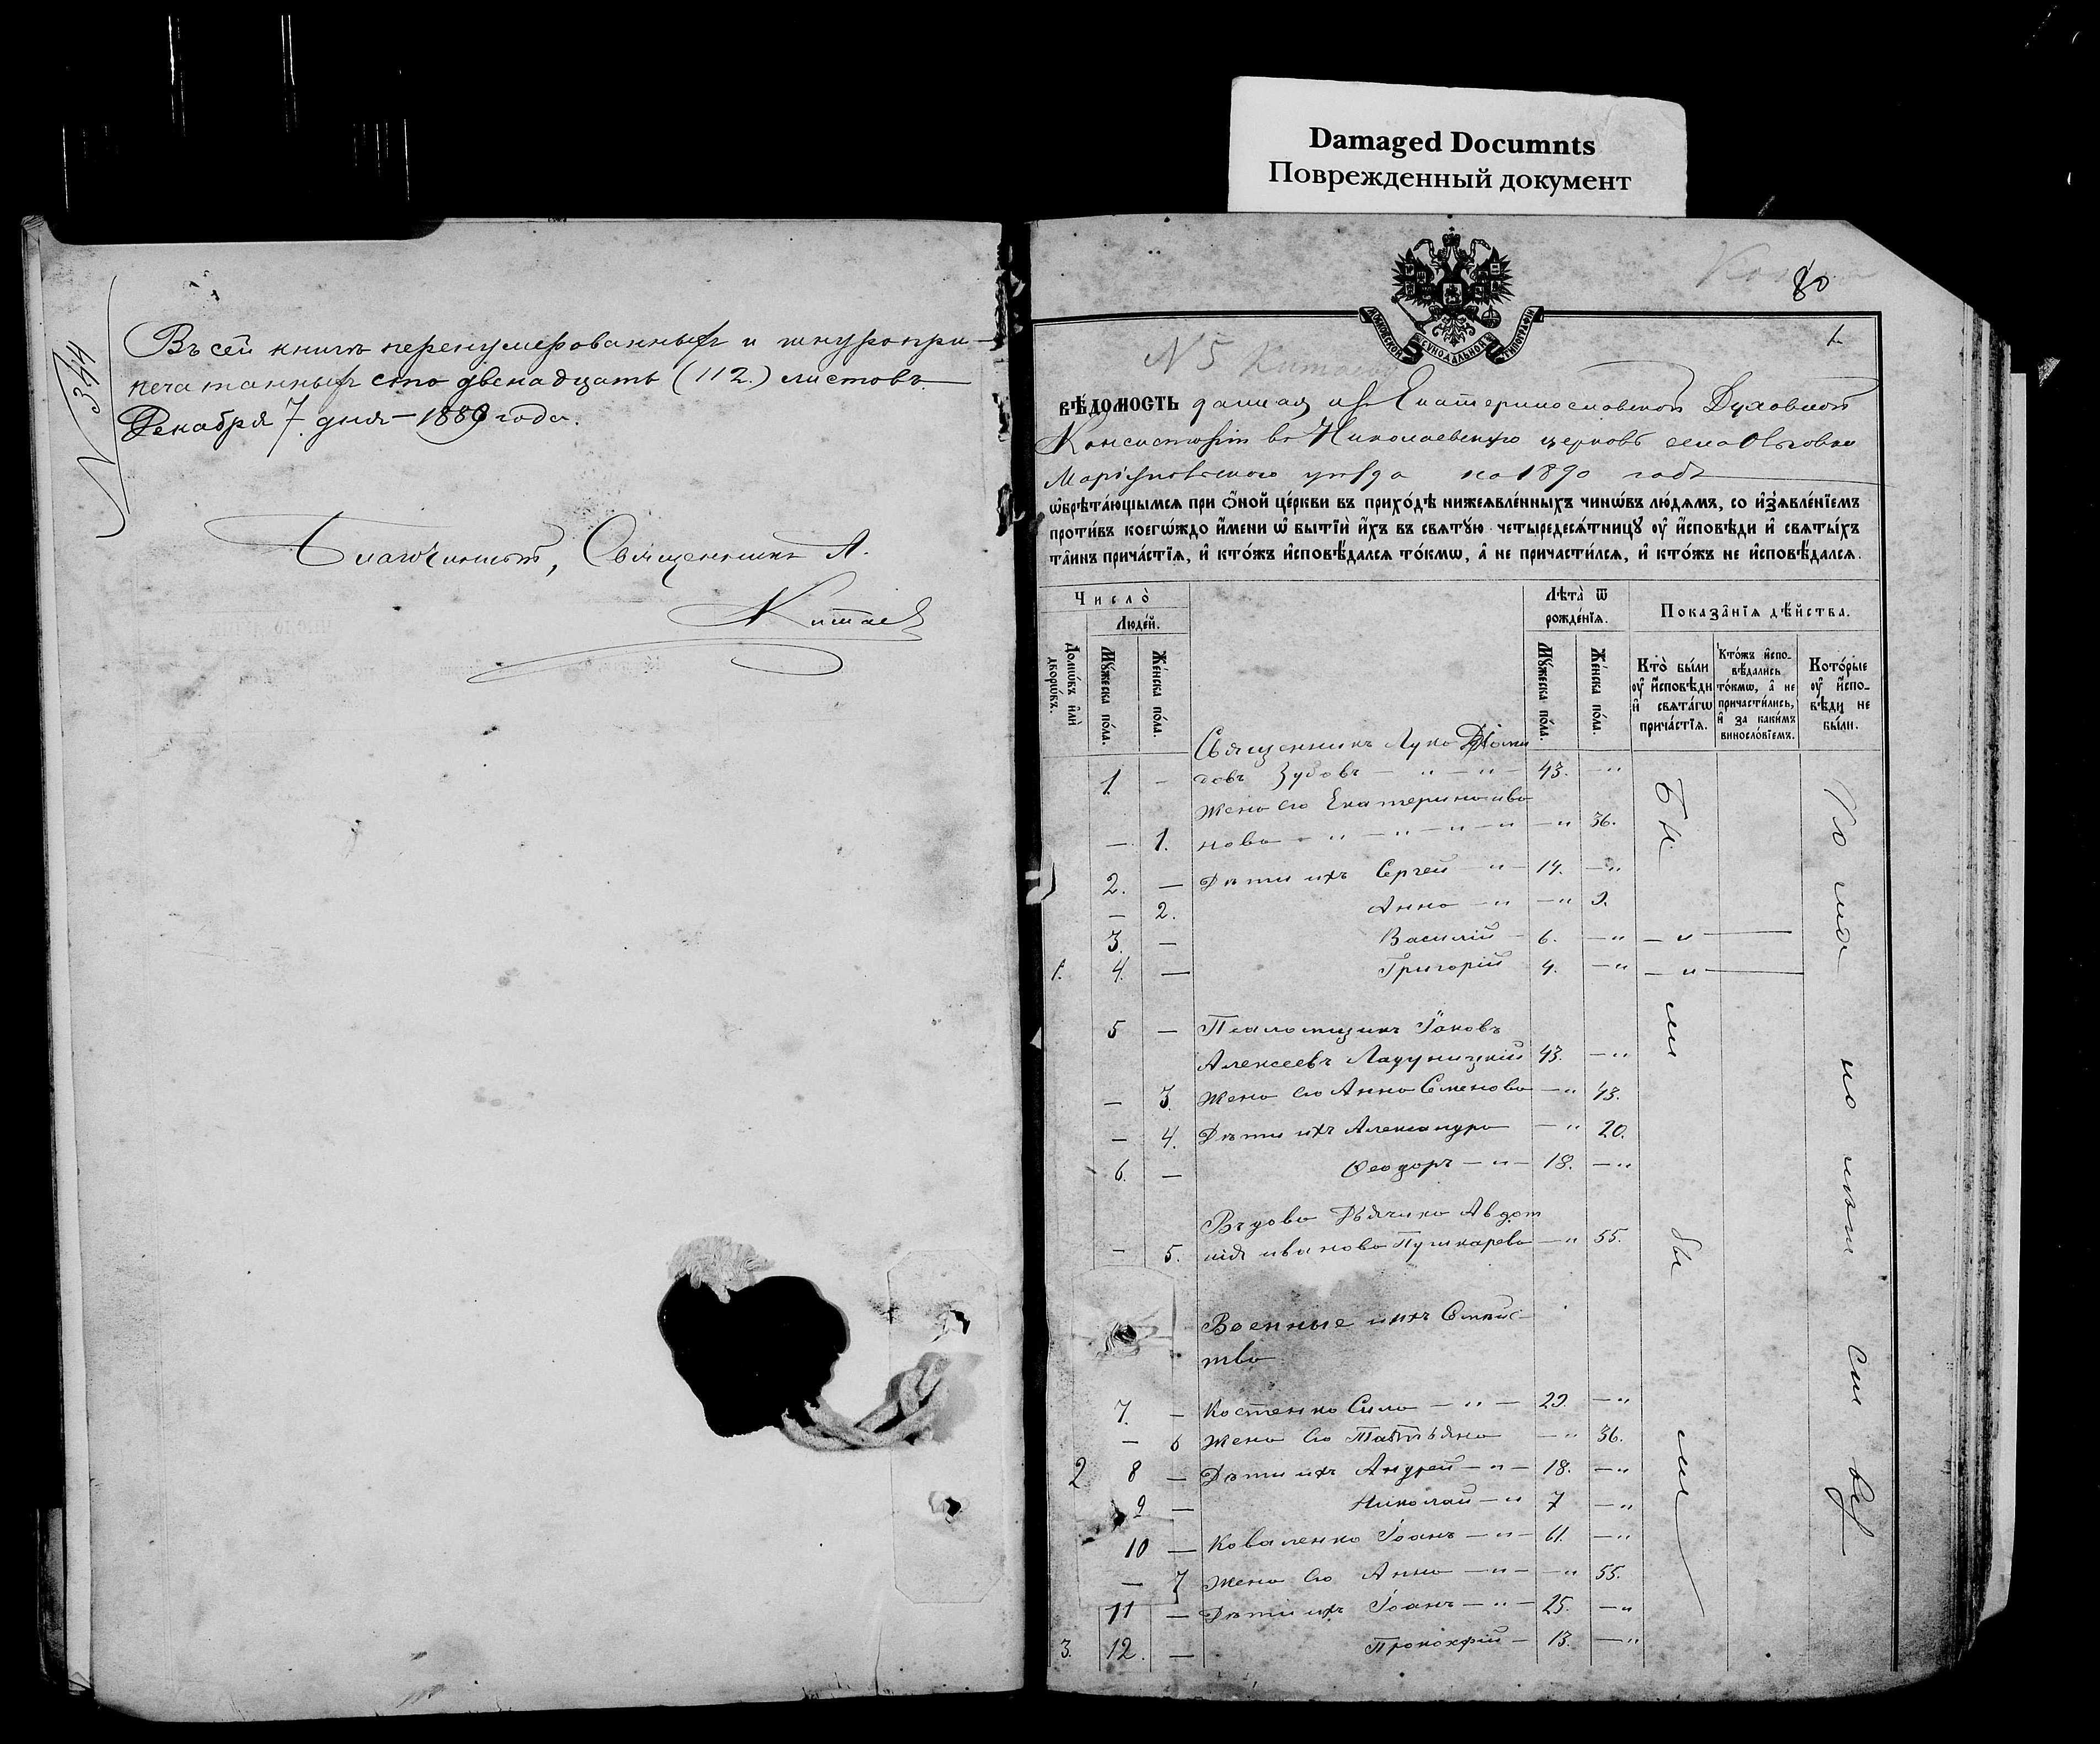 Damaged Documnts
Поврежденный документ
N 344
Въ сей книгѣ перенумерованныхъ и шнуропри-
печатанныхъ сто двенадцать (112.) листовъ.
Декабря 7. дня - 1889 года.
Благочинный, Священникъ А.
Китаев
80
1.
МОСКОВСКОЙ СѴНОДАЛЬНОЙ ТИПОГРАФІИ
N 5 Китаева
ВѢ́ДОМОСТЬ данная изъ Екатеринославской Духовной
Консисторіи въ Николаевскую церковь села
Маріупольского уѣзда на 1890 годъ
ѡ҆брѣта́ющымсѧ при ѻ҆́ной це́ркви въ прихо́дѣ нижеꙗвле́нныхъ чинѡ́въ лю́дѧмъ, со и҆з̾ѧвле́нїемъ
проти́въ коегѡ́ждо и҆́мени ѡ҆ бытїѝ и҆́хъ въ свѧтꙋ́ю четыредесѧ́тницꙋ ᲂу҆ и҆́сповѣди и҆ свѧты́хъ
та̑инъ прича́стїѧ, и҆ кто́жъ и҆сповѣ́далсѧ то́кмѡ, а҆ не причасти́лсѧ, и҆ кто́жъ не и҆сповѣ́далсѧ.
Число̀
Люде́й.
Домѡ́въ и҆лѝ дворѡ́въ.
Мꙋ́жеска по́ла.
Же́нска по́ла.
Лѣта̀ ѿ рожде́нїѧ.
Мꙋ́жеска по́ла.
Же́нска по́ла.
Показа̑нїѧ дѣ́йства.
Кто̀ бы́ли ᲂу҆ и҆́сповѣди и҆ свѧта́гѡ прича́стїѧ.
Кто́жъ и҆спо-вѣ́дались то́кмѡ, а҆ не причасти́лись, и҆ за каки́мъ винсло́вїемъ.
Кото́рые ᲂу҆ и҆́спо-вѣди не бы́ли.
Священникъ Лука Діоми
1. — довъ Зубовъ — " — " — 43. — "
Жена его Екатерина Ива
— 1. нова — " — " — " — " — " 36.
2. — Дѣти ихъ Сергей — " — 14. — "
— 2. Анна — " — " 9.
3. — Василій — 6. — " — " —
1. 4. — Григорій 4. — " — " —
5 — Псаломщикъ Іаковъ
Алексеевъ Ладуницкій 43. — "
— 3. Жена его Анна Семенова — " 43.
— 4. Дѣти ихъ Александра — " 20.
6. — Ѳеодоръ — " — 18. — "
Вдова Дьячиха Авдот
— 5. нія Иванова Пушкарева — " 55.
Военные и ихъ Семей-
ство
7. — Костенко Сила — " — 29. — "
— 6 Жена его Татьяна — " 36.
2 8 — Дѣти ихъ Андрей — " — 18. — "
9 — Николай — " 7 — "
10 — Коваленко Іоанъ — " — 61. — "
— 7 Жена его Анна — " — " 55.
11 — Дѣти ихъ Іоанъ — " — 25. — "
3. 12. — Прокофій — 13. — "
Бы
ли
бы
ли
По ма
ло
лѣт
ст